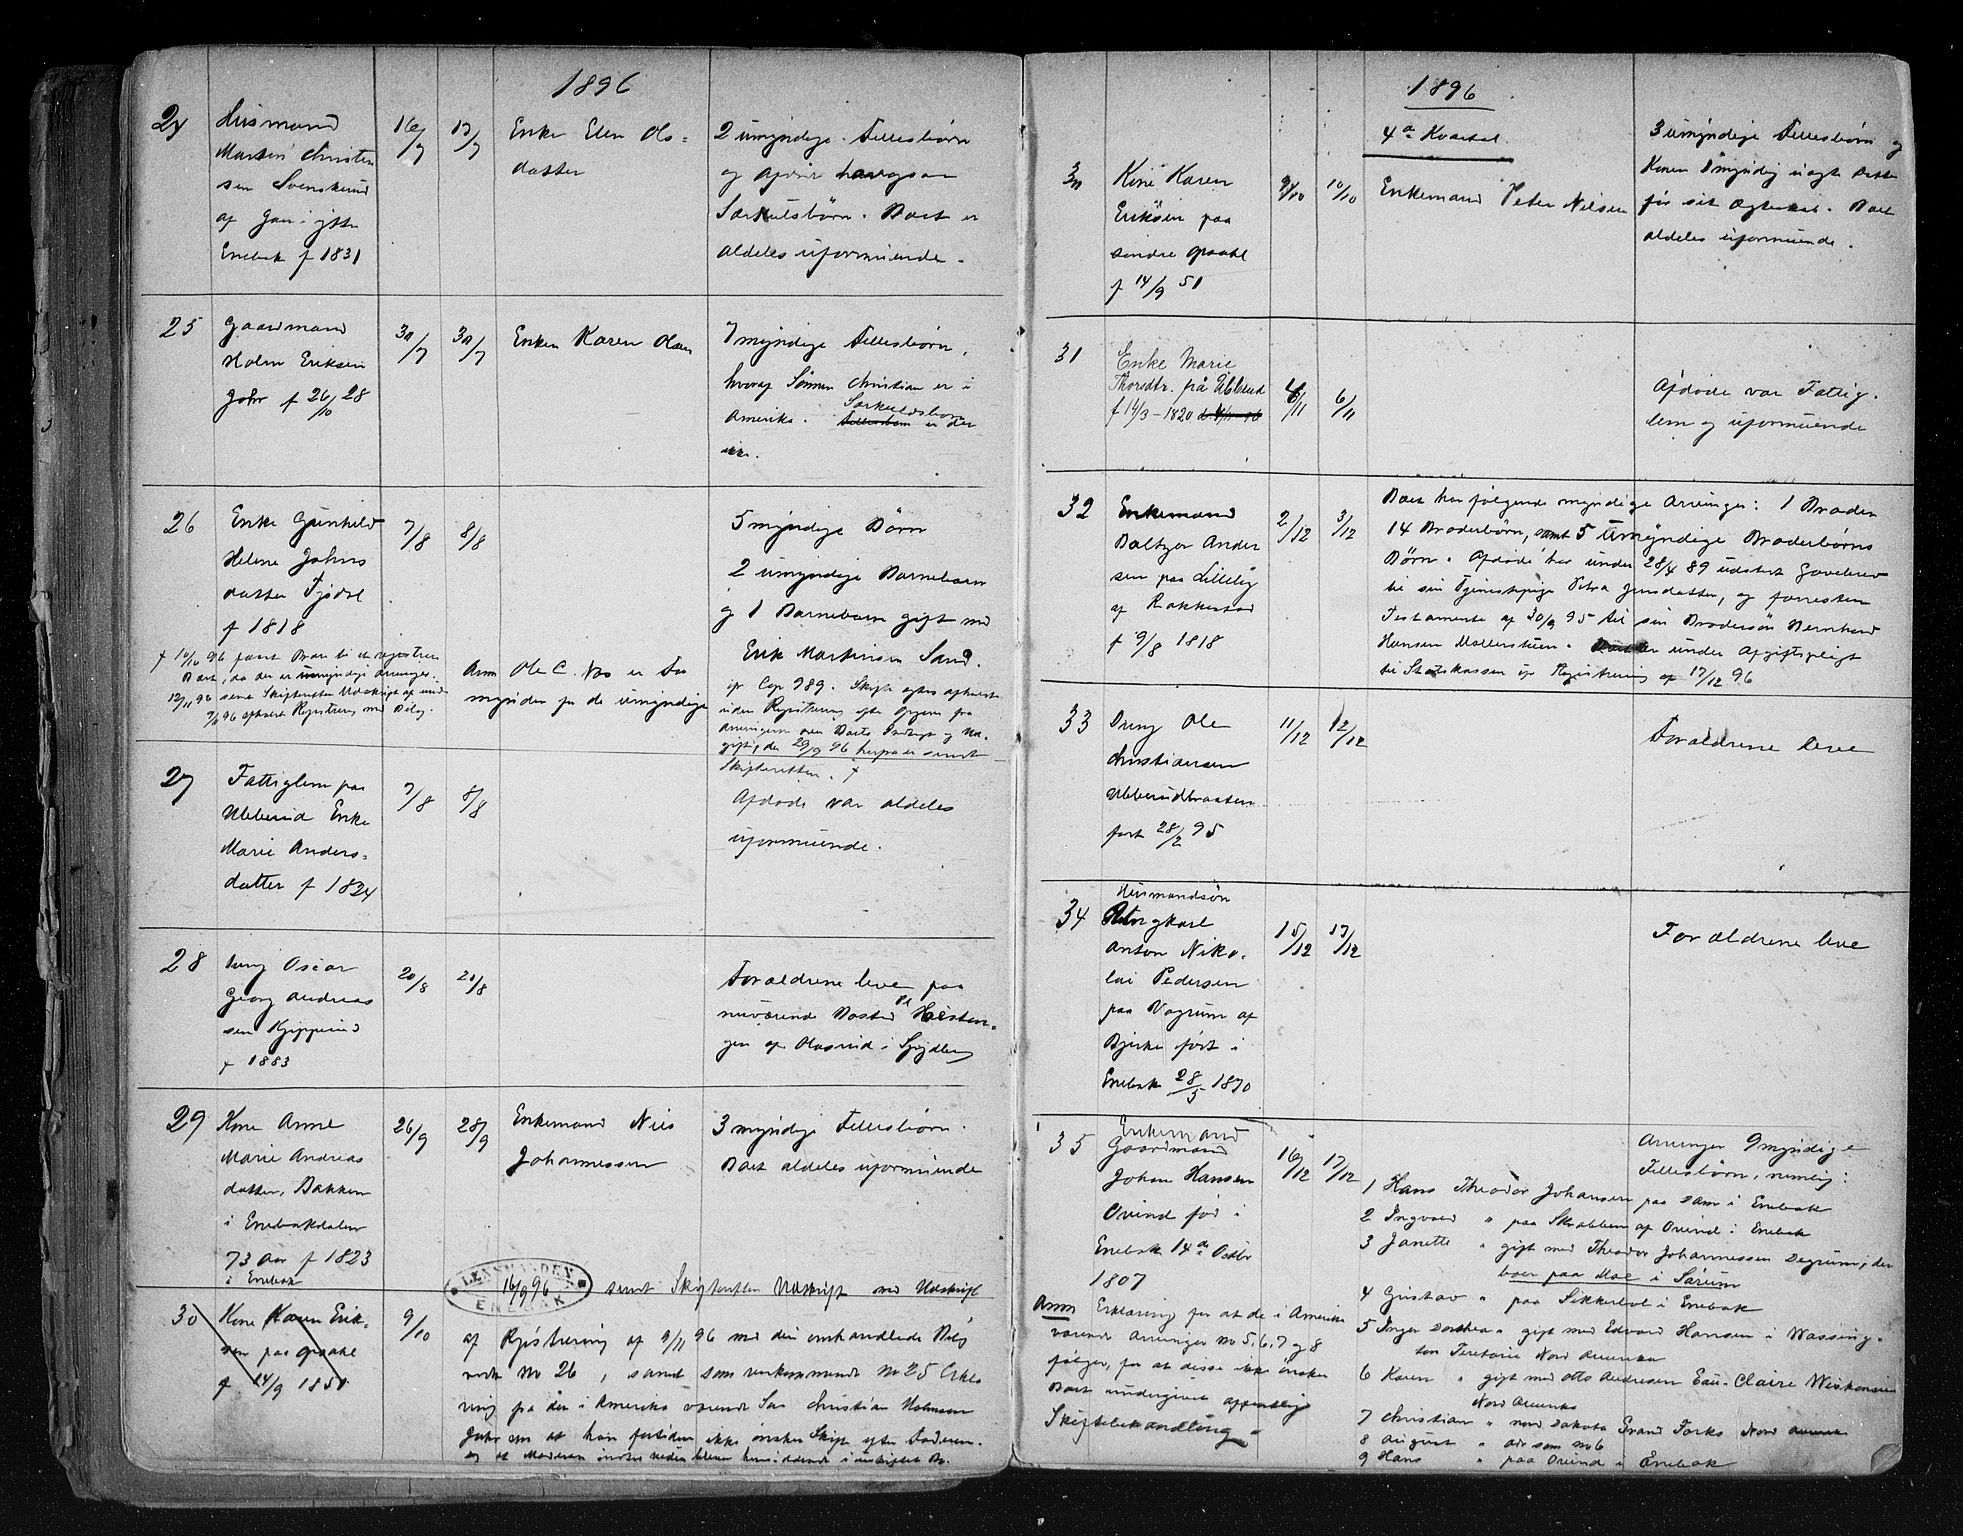 1896
24
Husmand
Martin Christen
sen Svenskerud
af Gran i ytre
Enebak f 1831
16/7
17/7
Enke Elen Ols-
datter
2 umyndige Fellesbørn
og Særkulsbørn. Boet er
aldeles uformuende.
25
Gaardmand
Holm Eriksen
Gjahr f 26/10 28
30/7
30/7
Enken Karen Olsen
7 myndige Fellesbørn,
hvoraf Sønnen Christian er i
Særkuldsbørn
Amerika. Fellesbørn er der
ikke.
26
Enke Gunhild
Helene Johns
datter Fjøstl
f 1818
7/8
8/8
5 myndige Børn
2 umyndige Barnebørn
og 1 Barnebarn gift med
Erik Martinsen Sand.
Anm Ole C. Næs er For
mynder for de umyndige
Skifteretten. †
27
Fattiglem paa
Ubberud Enke
Marie Anders-
datter f 1824
7/8
8/8
Afdøde var aldeles
uformuende.
28
Ung Oscar
Georg Andreas
sen Kjipperud
f 1883
20/8
21/8
Forældrene leve paa
nuværende Bosted Pl Hesten-
gen af Olasrud i Spydberg
29
Kone Anne
Marie Andreas
datter, Bakken
i Enebakdalen
73 Aar f 1823
i Enebak
26/9
28/9
Enkemand Nils
Johannessen
3 myndige Fellesbørn.
Boet aldeles uformuende
LENSMANDEN
16/9 96
ENEBAK
sendt Skifteretten Udskrift med Udskrift
30
Kone Karen Erik-
sen paa Opaahl
f 14/9 1851
9/10
af Registrering af 9/11 96 med den omhandlede Bilag
vedk No 26, samt som vedkommende No 25 Erklæ
ring fra den i Amerika værende Søn Christian Holmsen
Gjahr om at han fortiden ikke ønsker Skifte efter Faderen.
1896
4de Kvartal
30
Kone Karen
Eriksen paa
søndre Opaahl
f 14/9 51
9/10
10/10
Enkemand Peter Nilsen
3 umyndige Fellesbørn og
for sit Ægteskab. Boet
aldeles uformuende.
31
Enke Marie
Thorsdtr. på Ubberud
f 14/3 - 1820 d. 4/11 96
4/11
6/11
Afdøde var Fattig-
lem og uformuende
32
Enkemand
Baltzer Ander
sen paa Lilleby
af Rakkestad
f 9/8 1818
2/12
3/12
Boet har følgende myndige Arvinger: 1 Broder
14 Broderbørn, samt 5 umyndige Broderbørns
Børn. Afdøde har under 28/4 89 udstedt Gavebrev
til sin Tjenestepige Petra Jensdatter, og forresten
Testamente af 30/9 95 til sin Brodersøn Bernhard
Hansen Møllerstuen. Boet er under Afgiftspligt
til Statskassen if Registrering af 17/12 96
33
Dreng Ole
Christiansen
Ubberudbraaten
født 28/2 95
11/12
12/12
Forældrene leve
34
Husmandsøn
Ungkarl
Anton Niko-
lai Pedersen
paa Vagrum af
Bjerke født i
Enebak 28/5 1870
15/12
17/12
Forældrene leve
35
Enkemand
Gaardmand
Johan Hansen
Ovind fød i
Enebak 14de Octbr
1807
16/12
17/12
Arvinger 9 myndige
Fellesbørn, nemlig:
1 Hans Theodor Johansen paa Dam i Enebak
2 Ingvald " paa Skrabben af Ovind i Enebak
3 Janette " gift med Theodor Johannessen Degrum, der
boer paa Moe i Sørum
4 Gustav " paa Sikkerbøl i Enebak
5 Inger Dorthea " gift med Edvard Hansen i Wassing-
ton Teretorie Nord Amerika
6 Karen " gift med Otto Andresen Eau-Claire Wiskonsin
Nord Amerika
7 Christian " Nord Dakota Grand Forks Nord Amerik
8 August " adr som no 6
9 Hans " paa Ovind i Enebak
Anm Erklæring for at de i Amerika
værende Arvinger No 5, 6, 7 og 8
følger, for at disse ikke ønsker
Boet undergivet offentlig
Skiftebehandling.